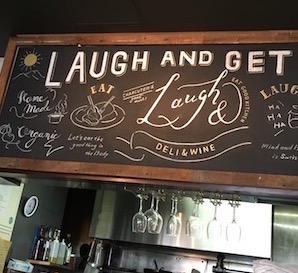 LAUGH AND GET
EAT
CHARCUTERIE
EAT GOOD KITCHEN
Laugh &
DELI & WINE
Home
Made
Organic
Let's eat the
good thing in
the Body
LAUG
HA
HA
HA
Mind and
is